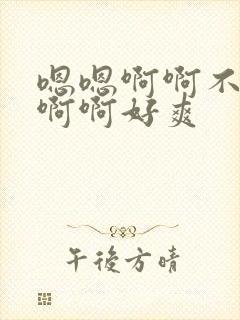 嗯嗯啊啊不
啊啊好爽
午後方晴